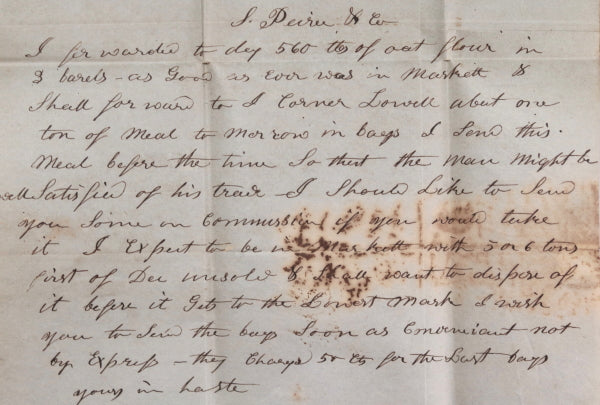 S. Peirce & Co
I forwarded to day 560 lbs of oat flour in
3 barels - as Good as Ever was in Markett &
Shall forward to I Corner Lowell about one
ton of Meal to Morrow in bags I Send this
Meal before the time So that the Man Might be
well Satisfied of his trade - I Should Like to Send
you Some on Commission if you would take
it I Expect to be in Markett with 5 or 6 tons
first of Dec unsold & Shall want to dispose of
it before it Gets to the Lowest Mark I wish
you to Send the bags Soon as Convenient not
by Express - they Charge 50 cts for the Last bags
yours in haste